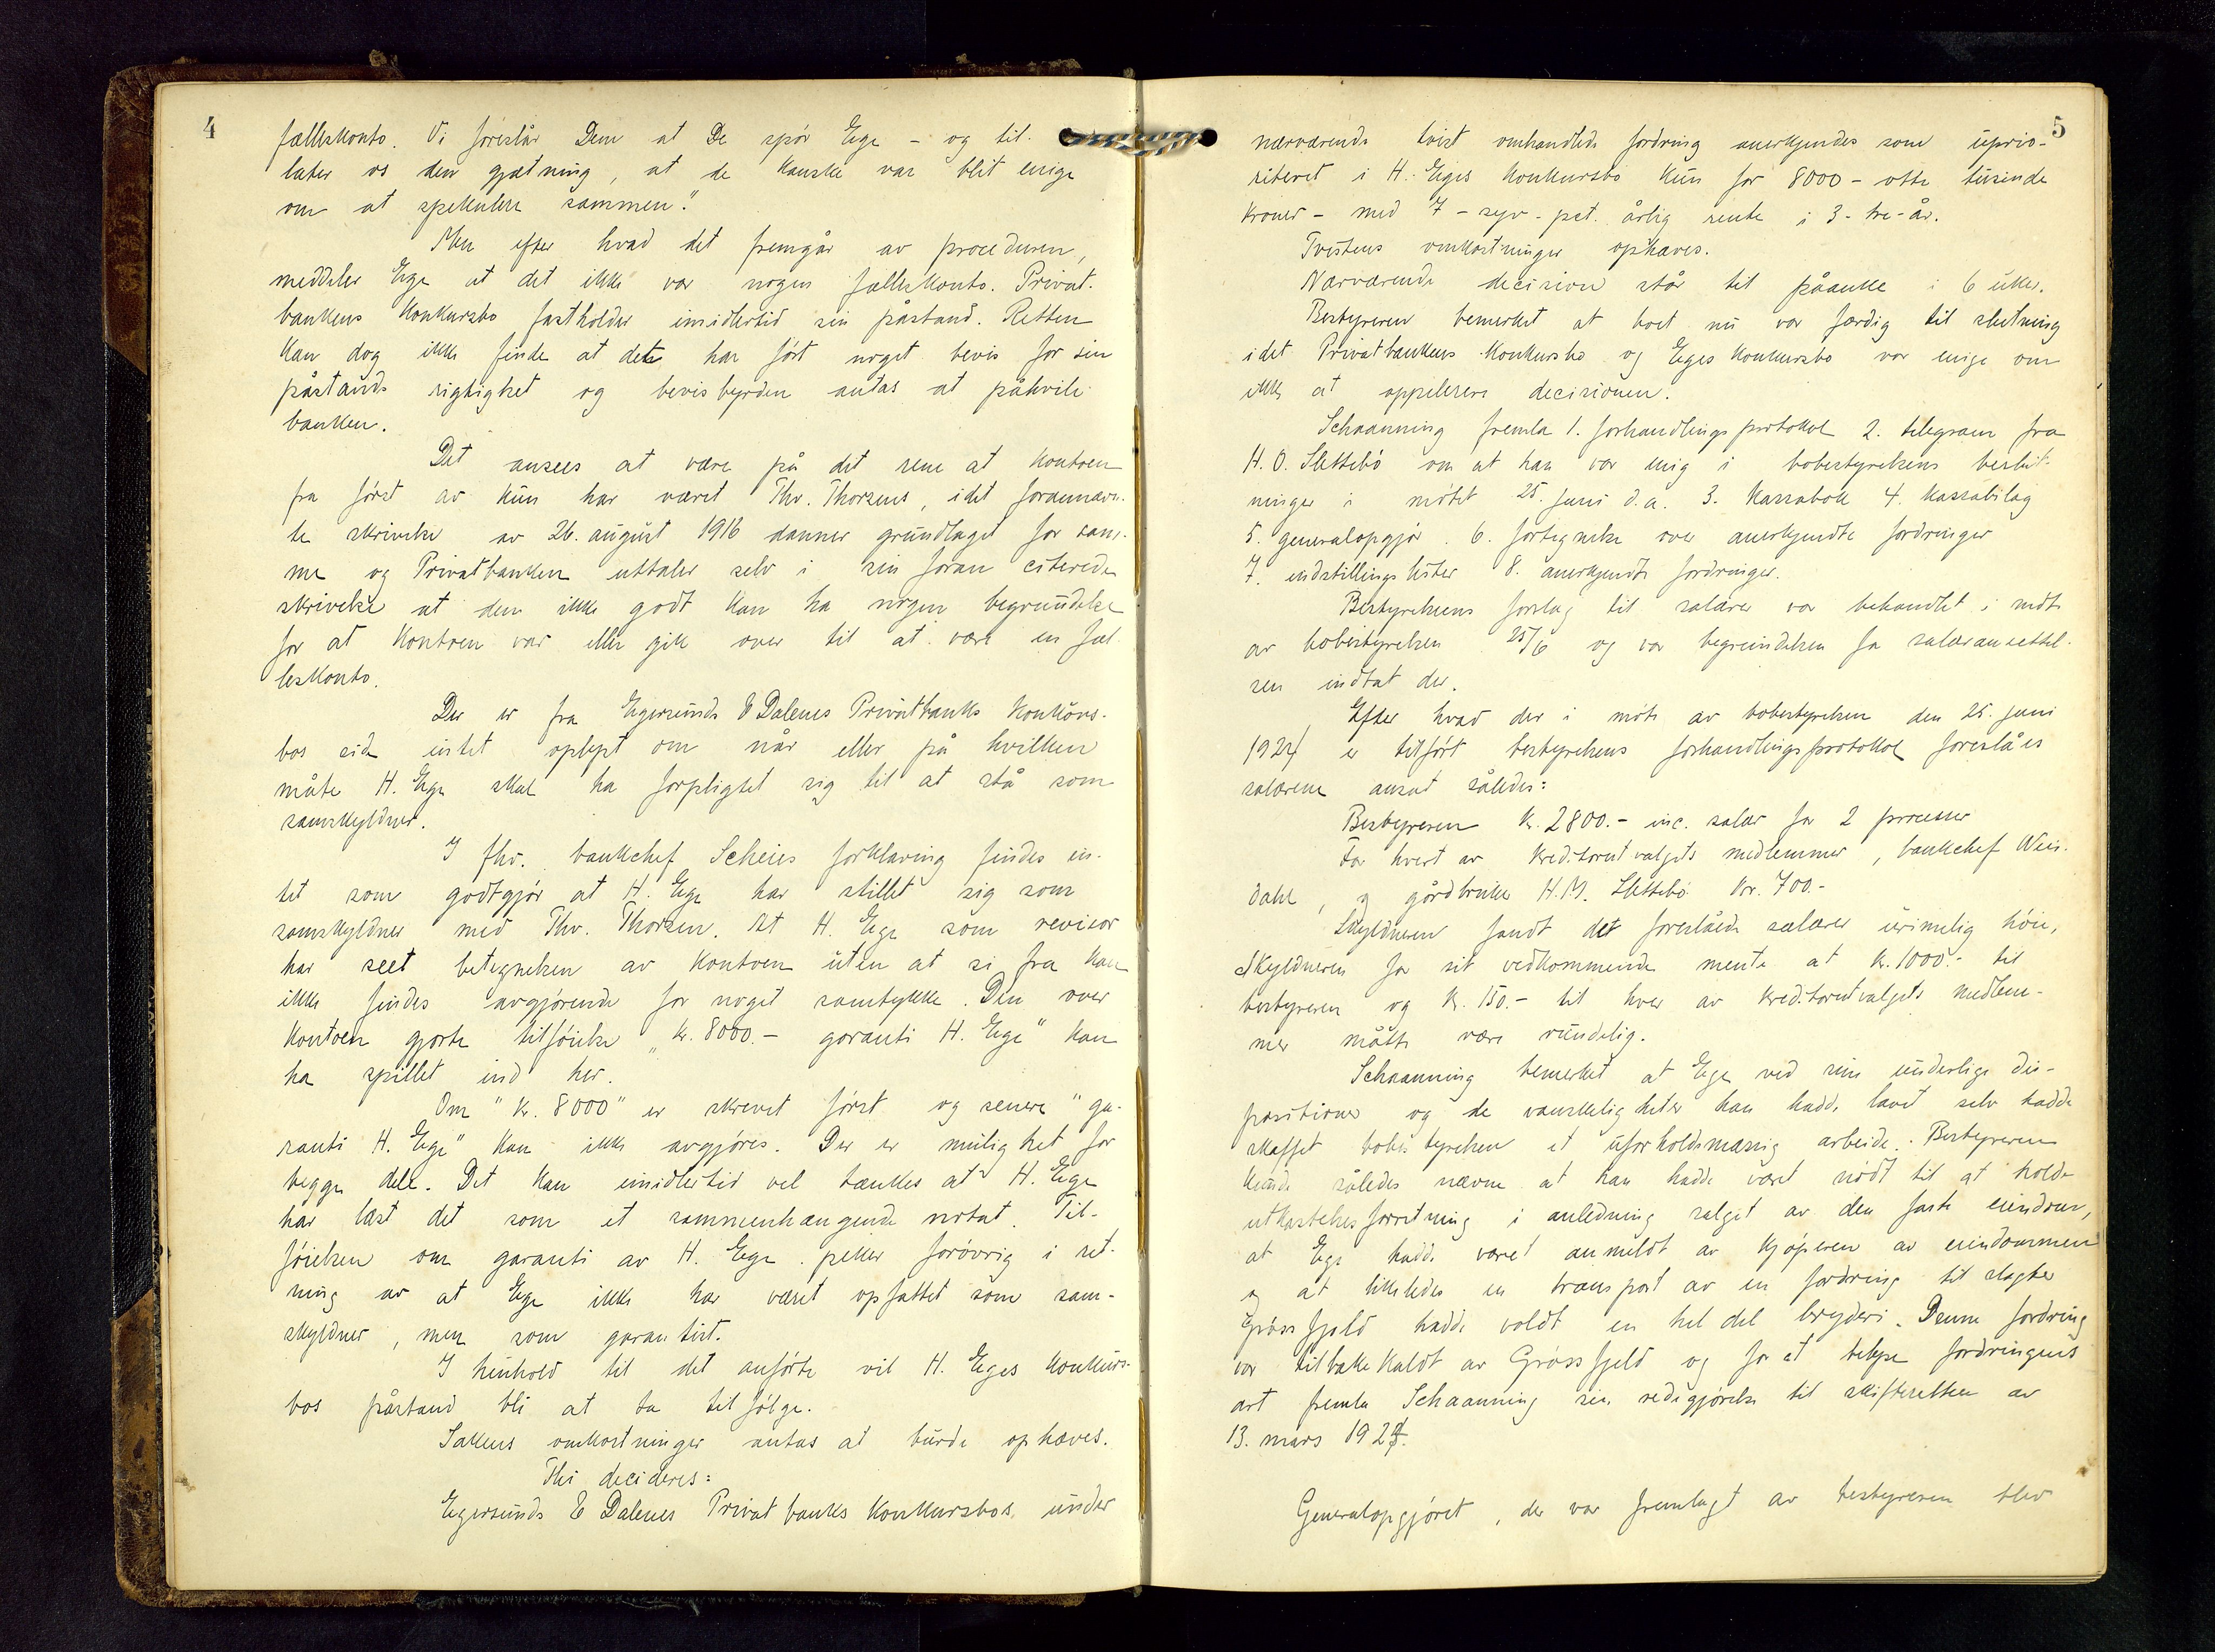 4
fælleskonto. Vi foreslår Dem at De spør Ege – og til-
later os den gjætning, at de kanske var blit enige
om at spekulere sammen."
Men efter hvad det fremgår av proceduren,
meddeler Ege at det ikke var nogen felleskonto. Privat-
bankens konkursbo fastholder imidlertid sin påstand. Retten
kan dog ikke finde at dette har ført noget bevis for sin
påstands rigtighet og bevisbyrden antas at påhvile
banken.
Det ansees at være på det rene at kontoen
fra først av kun har været Thv. Thorsens, idet forannævn-
te skrivelse av 26. august 1916 danner grundlaget for sam-
me og Privatbanken uttaler selv i sin foran citerede
skrivelse at den ikke godt kan ha nogen begrundelse
for at kontoen var eller gik over til at være en fæl-
leskonto.
Der er fra Egersunds & Dalenes Privatbanks konkurs-
bos side intet oplyst om når eller på hvilken
måte H. Ege skal ha forpligtet sig til at stå som
samskyldner.
I fhv. bankchef Scheies forklaring findes in-
tet som godtgjør at H. Ege har stillet sig som
samskyldner med Thv. Thorsen. At H. Ege som revisor
har seet betegnelsen av kontoen uten at si fra kan
ikke findes avgjørende for noget samtykke. Den over
kontoen gjorte tilføielse "kr. 8000.– garanti H. Ege" kan
ha spillet ind her.
Om "kr. 8000" er skrevet først og senere "ga-
ranti H. Ege" kan ikke avgjøres. Der er mulighet for
begge dele. Det kan imidlertid vel tænkes at H. Ege
har læst det som et sammenhængende notat. Til-
føielsen om garanti av H. Ege peker forøvrig i ret-
ning av at Ege ikke har været opfattet som sam-
skyldner, men som garantist.
I henhold til det anførte vil H. Eges konkurs-
bos påstand bli at ta tilfølge.
Sakens omkostninger antas at burde ophæves.
Thi decideres:
Egersunds & Dalenes Privatbanks konkursbos under
5
nærværende tvist omhandlede fordring anerkjendes som uprio-
ritert i H. Eges konkursbo kun for 8000 – otte tusinde
kroner – med 7 – syv – pct. årlig rente i 3 – tre – år.
Tvistens omkostninger ophæves.
Nærværende decision står til påanke i 6 uker.
Bestyreren bemerket at boet nu var færdig til slutning
idet Privatbankens konkursbo og Eges konkursbo var enige om
ikke at appelere decisionen.
Schaanning fremla 1. forhandlingsprotokol 2. telegram fra
H. O. Slettebø om at han var enig i bobestyrelsens beslut-
ninger i møtet 25. juni d.a. 3. Kassabok 4. Kassabilag
5. generalopgjør. 6. fortegnelse over anerkjendte fordringer
7. indstillingslister 8. anerkjendte fordringer.
Bestyrelsens forslag til salærer var behandlet i møte
av bobestyrelsen 25/6 og var begrundelsen for salæransættel-
sen indtat der.
Efter hvad der i møte av bobestyrelsen den 25. juni
1924 er tilført bestyrelsens forhandlingsprotokol foreslåes
salærene ansat således:
Bestyreren kr. 2800.– inc. salær for 2 processer
For hvert av kreditorutvalgets medlemmer, bankchef
dahl, og gårdbruker H. M. Slettebø kr. 700.–
Skyldneren fandt det foreslåede salærer urimelig høie,
Skyldneren for sit vedkommende mente at kr. 1000.– til
bestyreren og kr. 150.– til hver av kreditorutvalgets medlem-
mer måtte være rundelig.
Schaanning bemerket at Ege ved sine underlige dis-
positioner og de vanskeligheter han hadde lavet selv hadde
skaffet bobestyrelsen et uforholdsmæssig arbeide. Bestyreren
kunde således nævne at han hadde været nødt til at holde
utkastelsesforretning i anledning salget av den faste eiendom,
at Ege hadde været anmeldt av kjøperen av eiendommen
og at likeledes en transport av en fordring til slagter
Grøssfjeld hadde voldt en hel del bryderi. Denne fordring
var tilbakekaldt av Grøssfjeld og for at belyse fordringens
art fremla Schaanning sin redegjørelse til skifteretten av
13. mars 1924.
Generalopgjøret, der var fremlagt av bestyreren blev